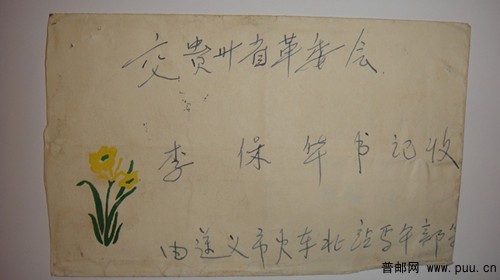 交贵州省革委会
李保华书记收
由遵义市火车北站
普邮网 www.puu.cn